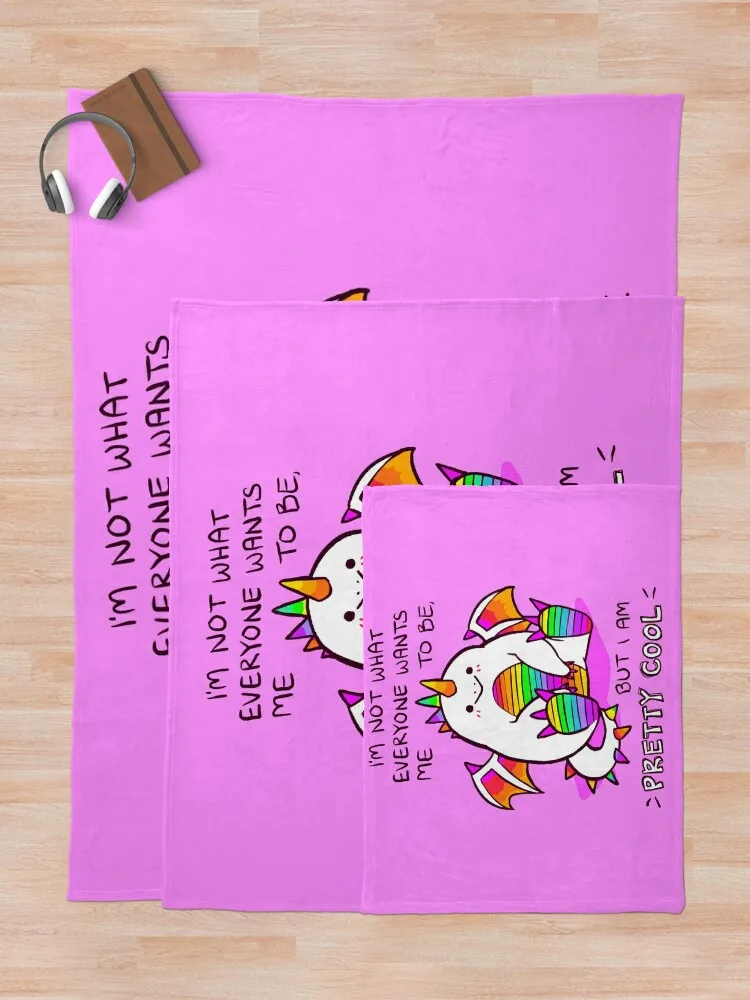 I'M NOT WHAT
EVERYONE WANTS
I'M NOT WHAT
EVERYONE WANTS
ME TO BE,
M
I'M NOT WHAT
EVERYONE WANTS
ME TO BE,
BUT I AM
PRETTY COOL